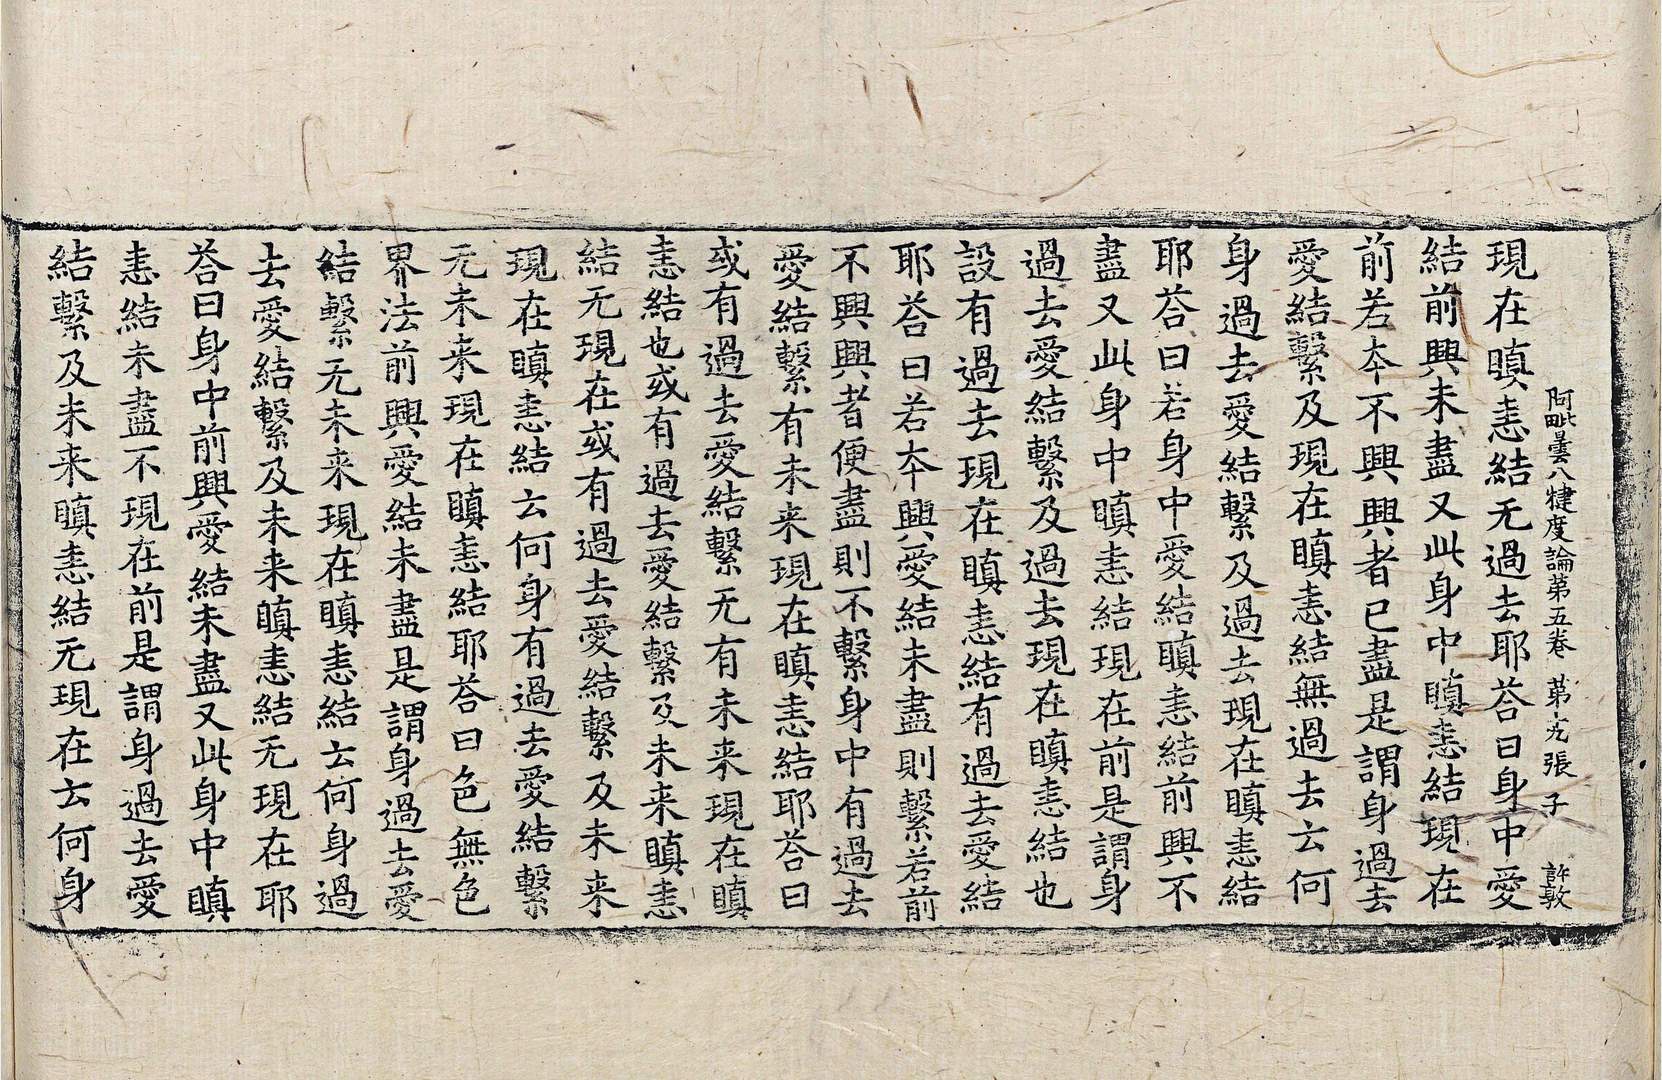 阿毗曇八犍度論第五卷 第十九張 子 許敦
現在瞋恚結无過去耶荅曰身中愛
結前興未盡又此身中瞋恚結現在
前若本不興興者已盡是謂身過去
愛結繫及現在瞋恚結無過去云何
身過去愛結繫及過去現在瞋恚結
耶荅曰若身中愛結瞋恚結前興不
盡又此身中瞋恚結現在前是謂身
過去愛結繫及過去現在瞋恚結也
設有過去現在瞋恚結有過去愛結
耶荅曰若本興愛結未盡則繫若前
不興興者便盡則不繫身中有過去
愛結繫有未来現在瞋恚結耶荅曰
或有過去愛結繫无有未来現在瞋
恚結也或有過去愛結繫及未来瞋恚
結无現在或有過去愛結繫及未来
現在瞋恚結云何身有過去愛結繫
无未来現在瞋恚結耶荅曰色無色
界法前興愛結未盡是謂身過去愛
結繫无未来現在瞋恚結云何身過
去愛結繫及未来瞋恚結无現在耶
荅曰身中前興愛結未盡又此身中瞋
恚結未盡不現在前是謂身過去愛
結繫及未来瞋恚結无現在云何身